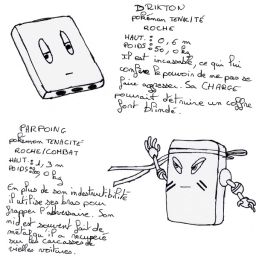 BRIKTON
POKÉMON TENACITÉ
ROCHE
HAUT.: 0,6 m
POIDS: 50,0 kg
Il est incassable, ce qui lui
confère le pouvoir de ne pas se
faire agresser. Sa CHARGE
pourrait détruire un coffre
fort blindé.
PARPOING
POKÉMON TENACITÉ
ROCHE/COMBAT
HAUT: 1,3 m
POIDS: 200,0 kg
En plus de son indestructibilité
il utilise ses bras pour
frapper l'adversaire. Son
nid est souvent fait de
métal qu'il a récupéré
sur les carcasses de
vieilles voitures.